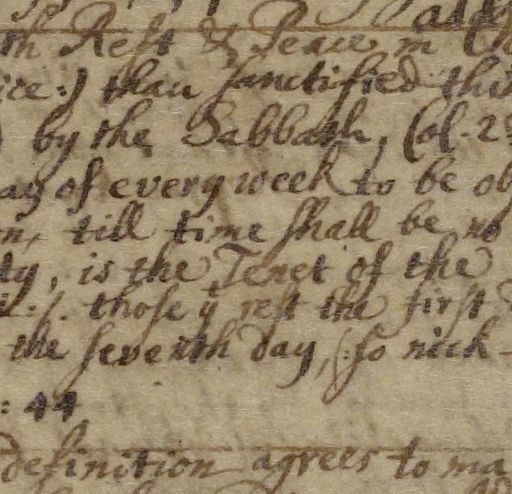 th Rest & Peace in
ice:) than sanctified this
by the Sabbath, Col. 2
ay of every week to be ob
on, till time shall be no
ty, is the Tenet of the
those yt rest the first
the seventh day, (:so nick-
: 44
definition agrees to ma